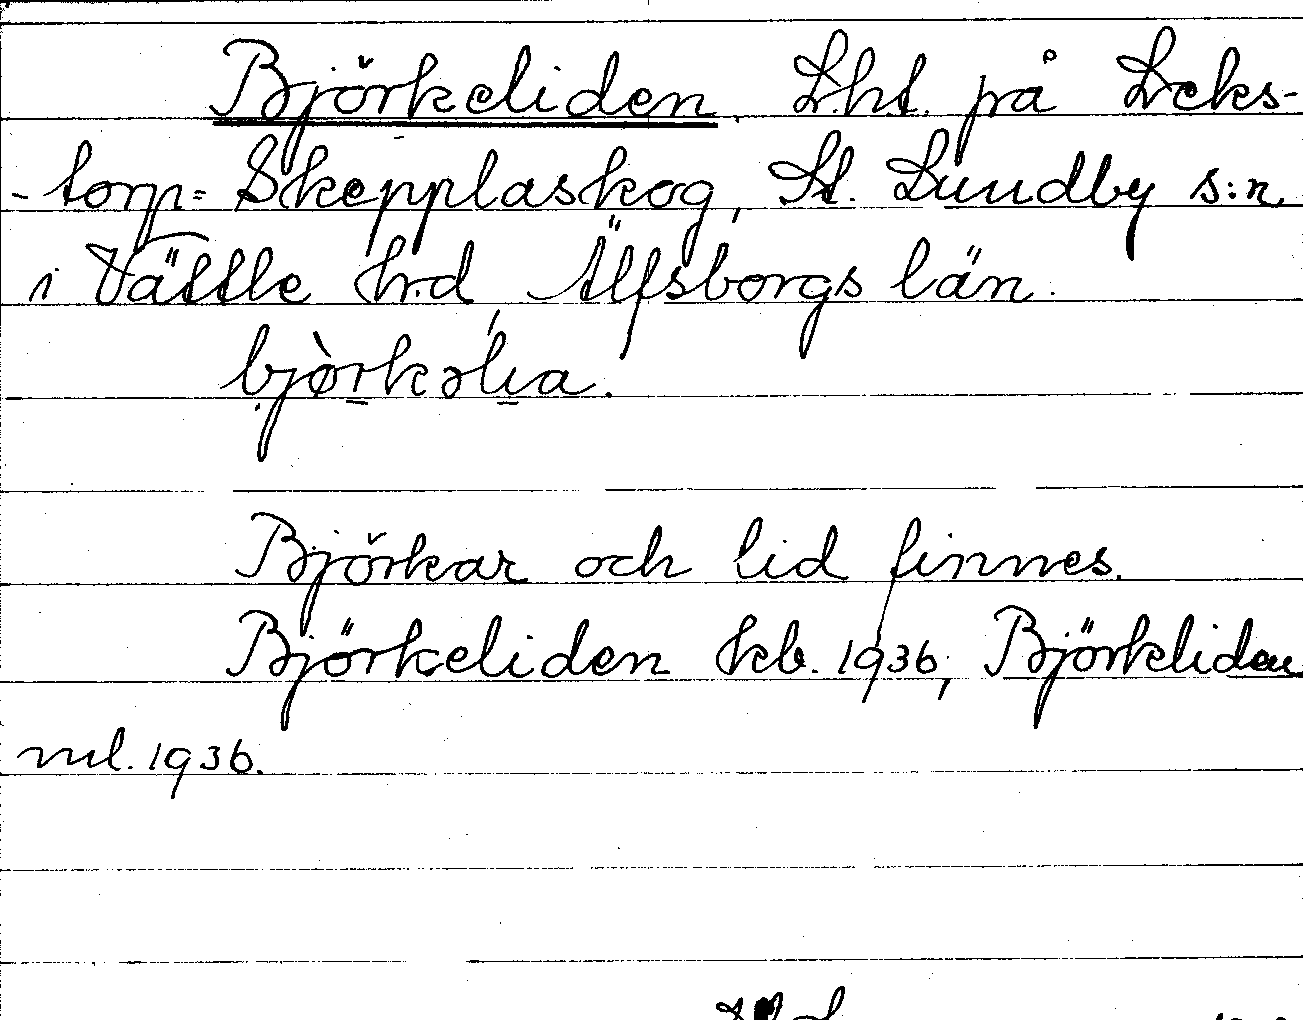 Björkeliden. Lht. på Leks-
-torp= Skepplaskog, St. Lundby s:n
i Vättle hrd, Älfsborgs län.
bjòrkəlia.
Björkar och lid finnes.
Björkeliden kb. 1936, Björkliden
ml. 1936.